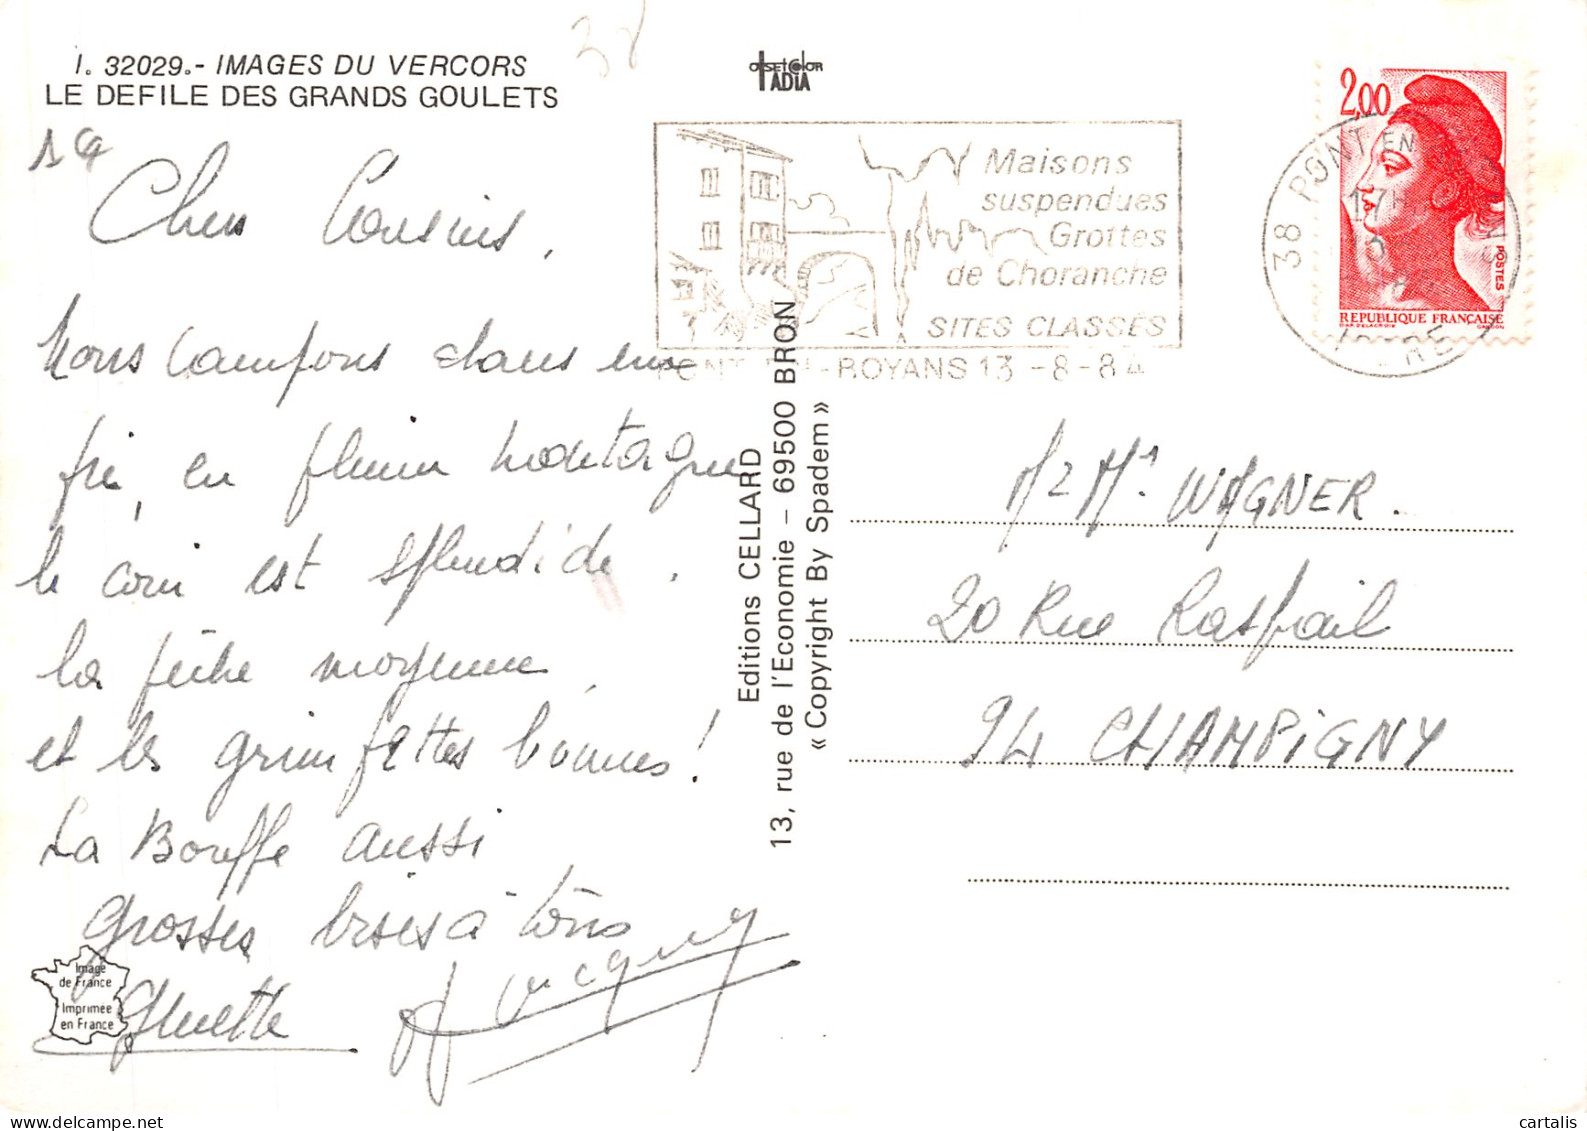 38
I. 32029.- IMAGES DU VERCORS
LE DEFILE DES GRANDS GOULETS
Chers Cousins,
Nous Campons dans un
pré, en pleine montagne
le coin est splendide.
La pêche moyenne,
et les grimpettes bonnes!
La Bouffe aussi
Grosses bises à tous
Ginette Jacques
Image
de France
Imprimée
en France
OffsetColor
IADIA
Maisons
suspendues
Grottes
de Choranche
SITES CLASSÉS
PONT-EN-ROYANS 13-8-84
Editions CELLARD
13, rue de l'Economie - 69500 BRON
« Copyright By Spadem »
2,00
POSTES
REPUBLIQUE FRANÇAISE
D'AP. DELACROIX GANDON
38 PONT EN ROYANS
17H
13
ISERE
WAGNER.
20 Rue Raspail
94 CHAMPIGNY
cartalis